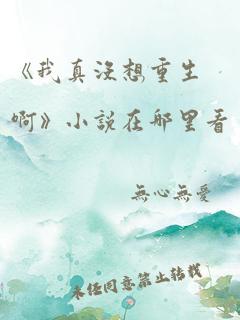 《我真没想重生
啊》小说在那里看
無心無愛
未经同意禁止转载